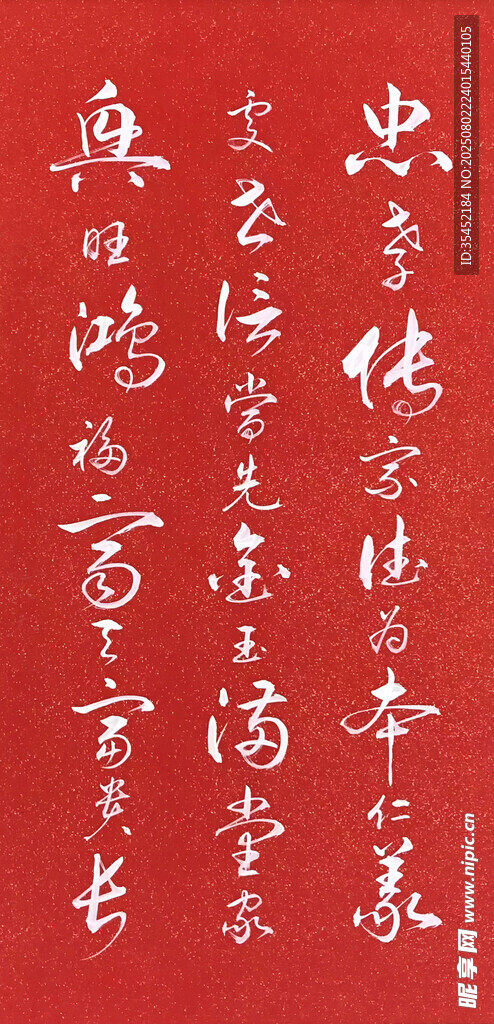 忠孝傳家德為本仁義
處世信當先金玉滿堂家
興旺鴻福齊天富貴長
ID:35452184 NO:20250802224015440105
昵享网 www.nipic.cn